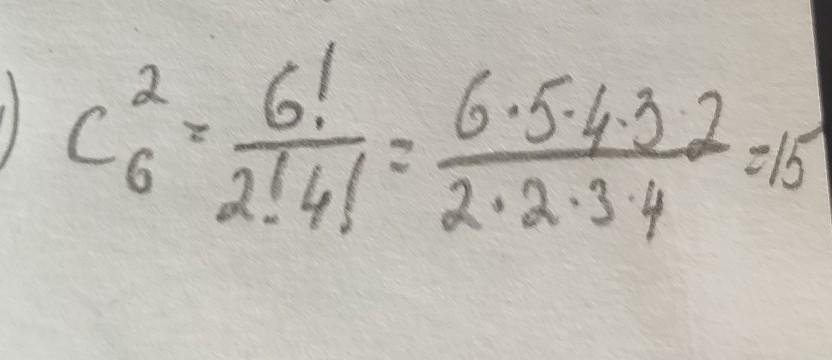 ) C₆² = 6!/2!4! = 6·5·4·3·2/2·2·3·4 = 15